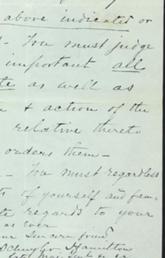 above indicated or
- You must judge
important all
as well as
& action of the
relative thereto
orders them -
- You must regardless
of yourself and
regards to your
as ever
Hamilton